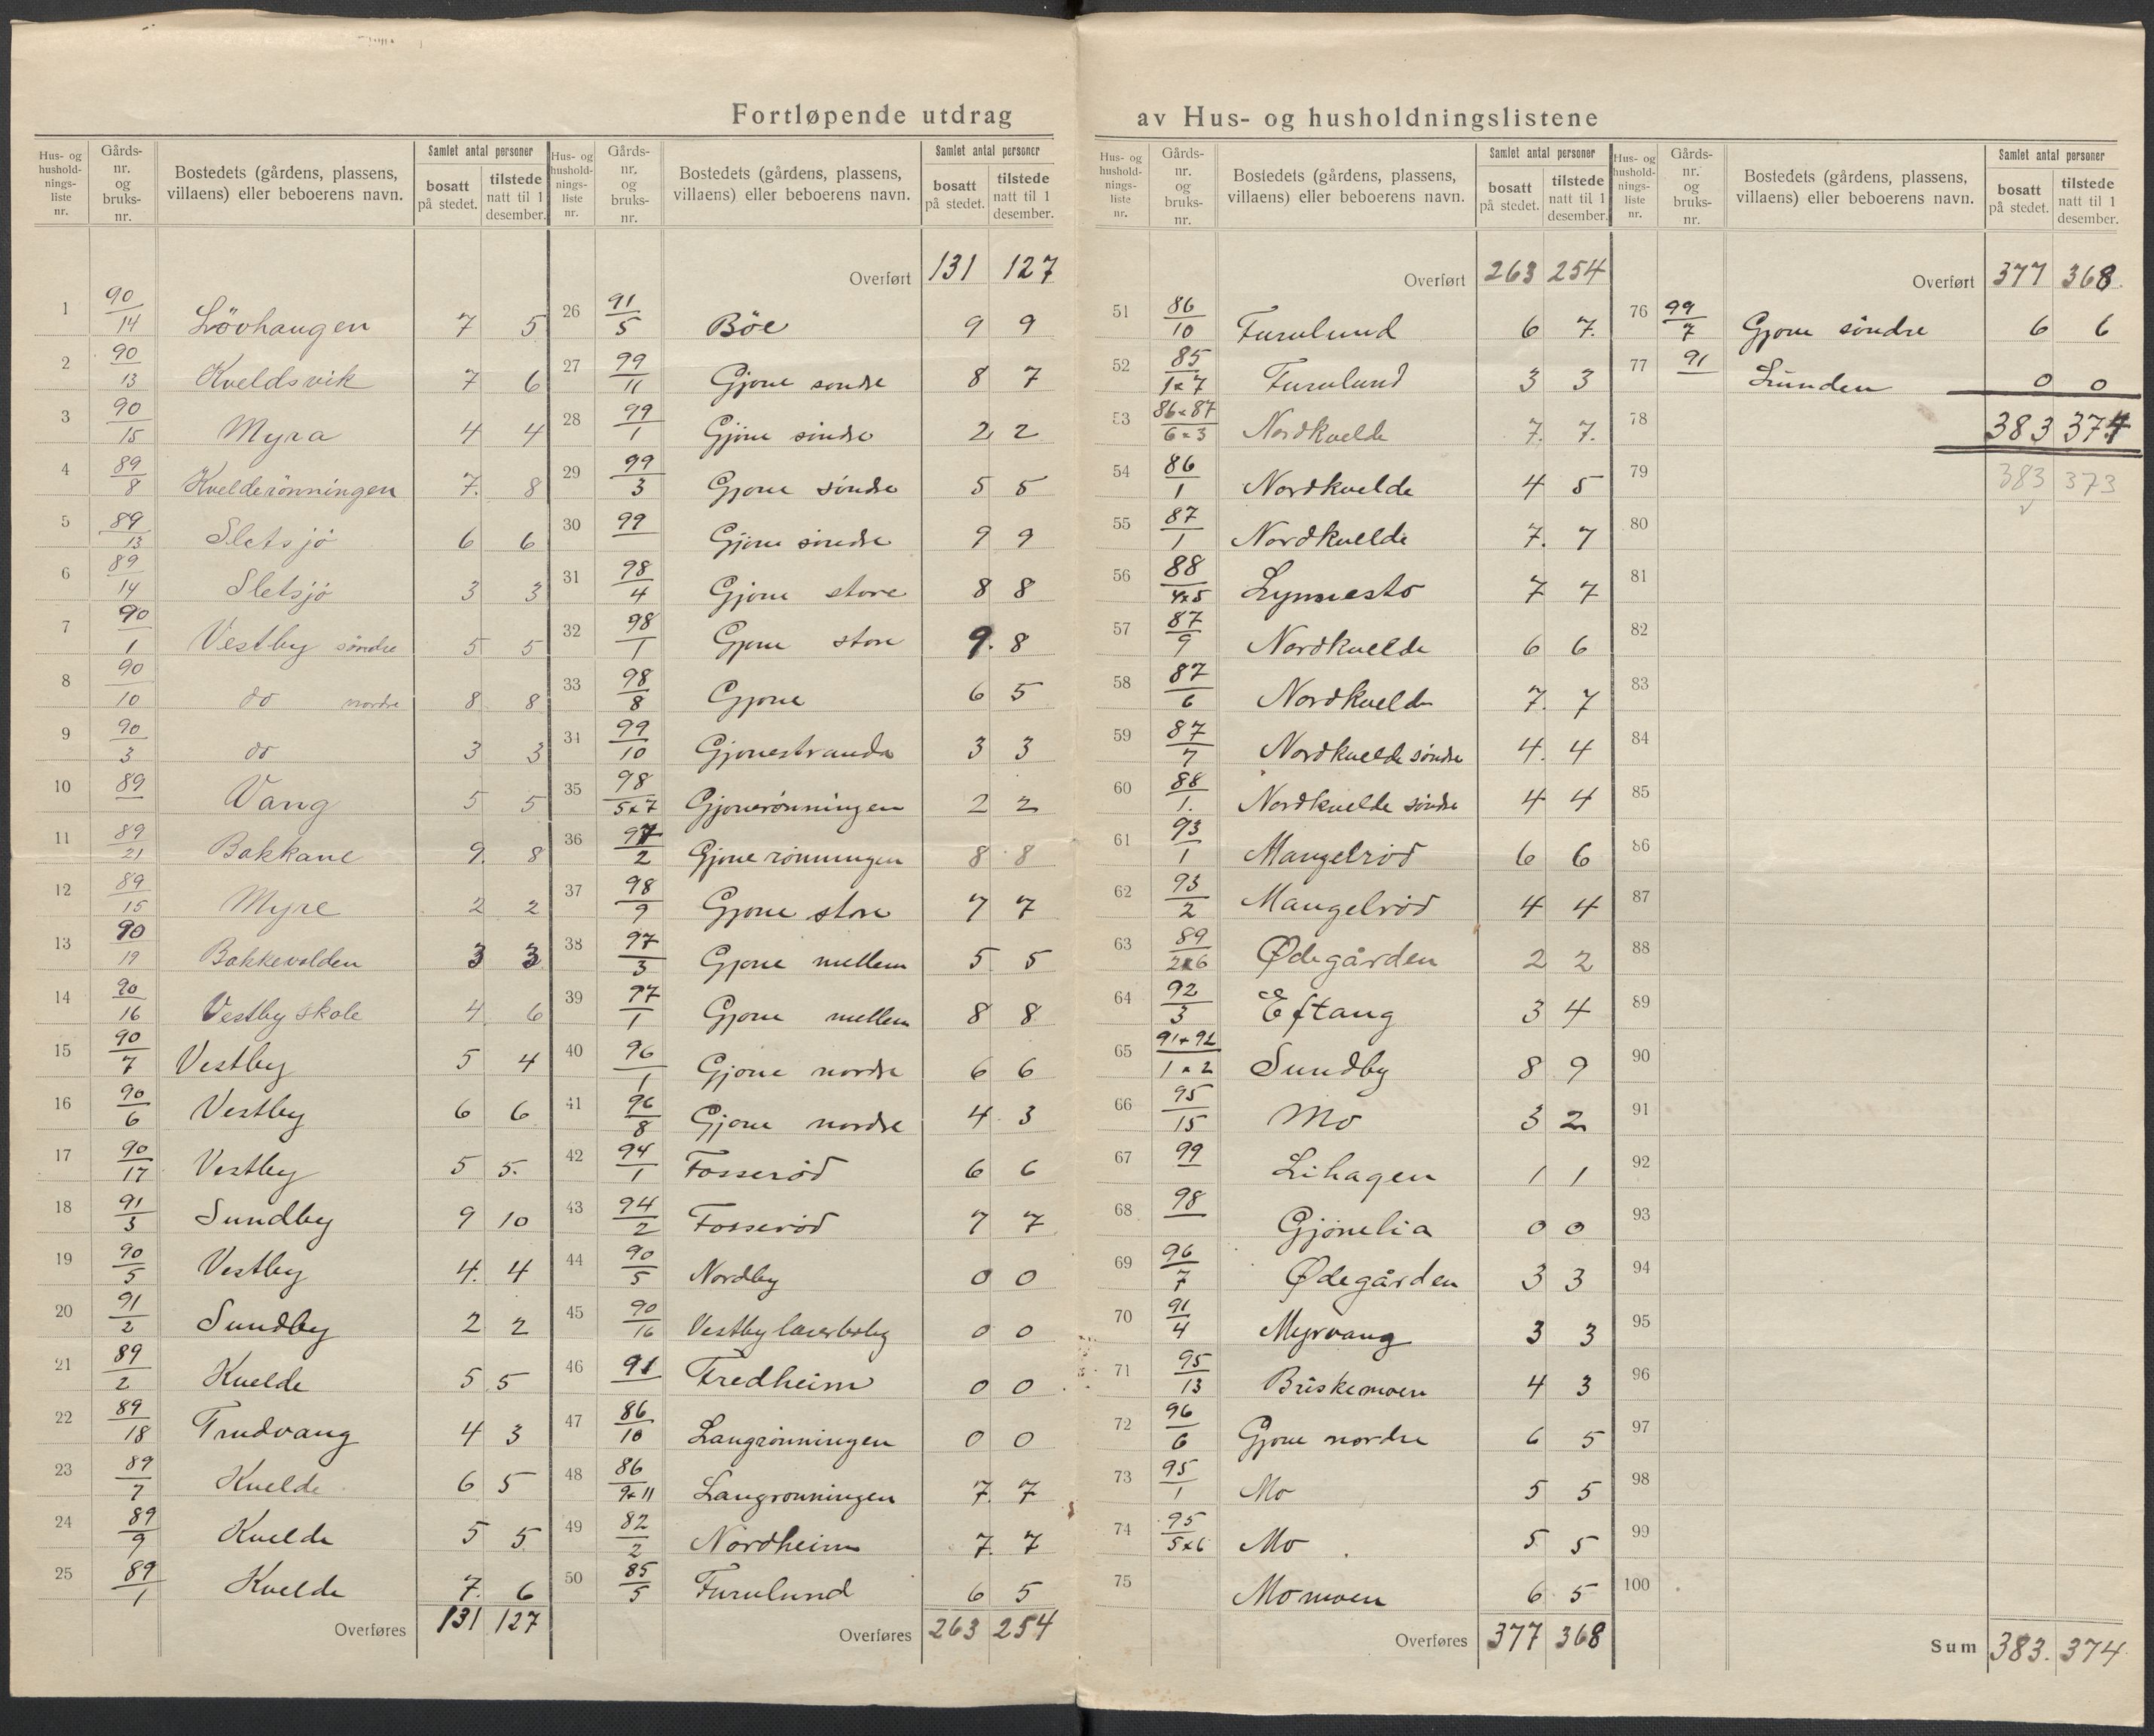 Fortløpende utdrag av Hus- og husholdningslistene
Hus- og husholdnings-liste nr. | Gårds-nr. og bruks-nr. | Bostedets (gårdens, plassens, villaens) eller beboerens navn. | Samlet antal personer | bosatt på stedet. | tilstede natt til 1 desember.
1 90/14 Lövhaugen 7 5
2 90/13 Kveldsvik 7 6
3 90/15 Myra 4 4
4 89/8 Kvelderönningen 7. 8
5 89/13 Sletsjö 6 6
6 89/14 Sletsjö 3 3
7 90/1 Vestby söndre 5 5
8 90/10 do nordre 8 8
9 90/3 do 3 3
10 89 Vang 5 5
11 89/21 Bakkane 9. 8
12 89/15 Myre 2 2
13 90/19 Bakkevolden 3 3
14 90/16 Vestby skole 4 6
15 90/7 Vestby 5 4
16 90/6 Vestby 6 6
17 90/17 Vestby 5 5.
18 91/3 Sundby 9 10
19 90/5 Vestby 4. 4
20 91/2 Sundby 2 2
21 89/2 Kvelde 5 5
22 89/18 Trudvang 4 3
23 89/7 Kvelde 6 5
24 89/9 Kvelde 5 5
25 89/1 Kvelde 7. 6
Overføres 131 127
Hus- og husholdnings-liste nr. | Gårds-nr. og bruks-nr. | Bostedets (gårdens, plassens, villaens) eller beboerens navn. | Samlet antal personer | bosatt på stedet. | tilstede natt til 1 desember.
Overført 131 127
26 91/5 Böe 9 9
27 99/11 Gjone sondre 8 7
28 99/1 Gjone söndre 2 2
29 99/3 Gjone söndre 5 5
30 99 Gjone söndre 9 9
31 98/4 Gjone store 8 8
32 98/1 Gjone store 9. 8
33 98/8 Gjone 6 5
34 99/10 Gjonestranda 3 3
35 98/5x7 Gjonerönningen 2 2
36 97/2 Gjonerönningen 8 8
37 98/9 Gjone store 7 7
38 97/3 Gjone mellem 5 5
39 97/1 Gjone mellem 8 8
40 96/1 Gjone nordre 6 6
41 96/8 Gjone nordre 4 3
42 94/1 Fosseröd 6 6
43 94/2 Fosseröd 7 7
44 90/5 Nordby 0 0
45 90/16 Vestby lærerbolig 0 0
46 91 Fredheim 0 0
47 86/10 Langrönningen 0 0
48 86/9x11 Langronningen 7. 7
49 82/2 Nordheim 7. 7
50 85/5 Furulund 6 5
Overføres 263 254
Hus- og husholdnings-liste nr. | Gårds-nr. og bruks-nr. | Bostedets (gårdens, plassens, villaens) eller beboerens navn. | Samlet antal personer | bosatt på stedet. | tilstede natt til 1 desember.
Overført 263 254
51 86/10 Furulund 6 7.
52 85/1x7 Furulund 3 3
53 86x87/6x3 Nordkvelde 7. 7.
54 86/1 Nordkvelde 4 5
55 87/1 Nordkvelde 7. 7
56 88/4x5 Lynnesto 7 7
57 87/9 Nordkvelde 6 6
58 87/6 Nordkvelde 7. 7
59 87/7 Nordkvelde söndre 4. 4
60 88/1. Nordkvelde söndre 4 4
61 93/1 Mangelröd 6 6
62 93/2 Mangelröd 4 4
63 89/2x6 Ødegården 2 2
64 92/3 Eftang 3 4
65 91x92/1x2 Sundby 8 9
66 95/15 Mo 3 2
67 99 Lihagen 1 1
68 98 Gjönelia 0 0
69 96/7 Ødegården 3 3
70 91/4 Myrvang 3 3
71 95/13 Briskemoen 4 3
72 96/6 Gjone nordre 6 5
73 95/1 Mo 5 5
74 95/5x6 Mo 5 5
75 Momoen 6 5
Overføres 377 368
Hus- og husholdnings-liste nr. | Gårds-nr. og bruks-nr. | Bostedets (gårdens, plassens, villaens) eller beboerens navn. | Samlet antal personer | bosatt på stedet. | tilstede natt til 1 desember.
Overført 377 368
76 99/7 Gjone söndre 6 6
77 91 Lunden 0 0
78 383 374
79 383 373
80
81
82
83
84
85
86
87
88
89
90
91
92
93
94
95
96
97
98
99
100
Sum 383. 374